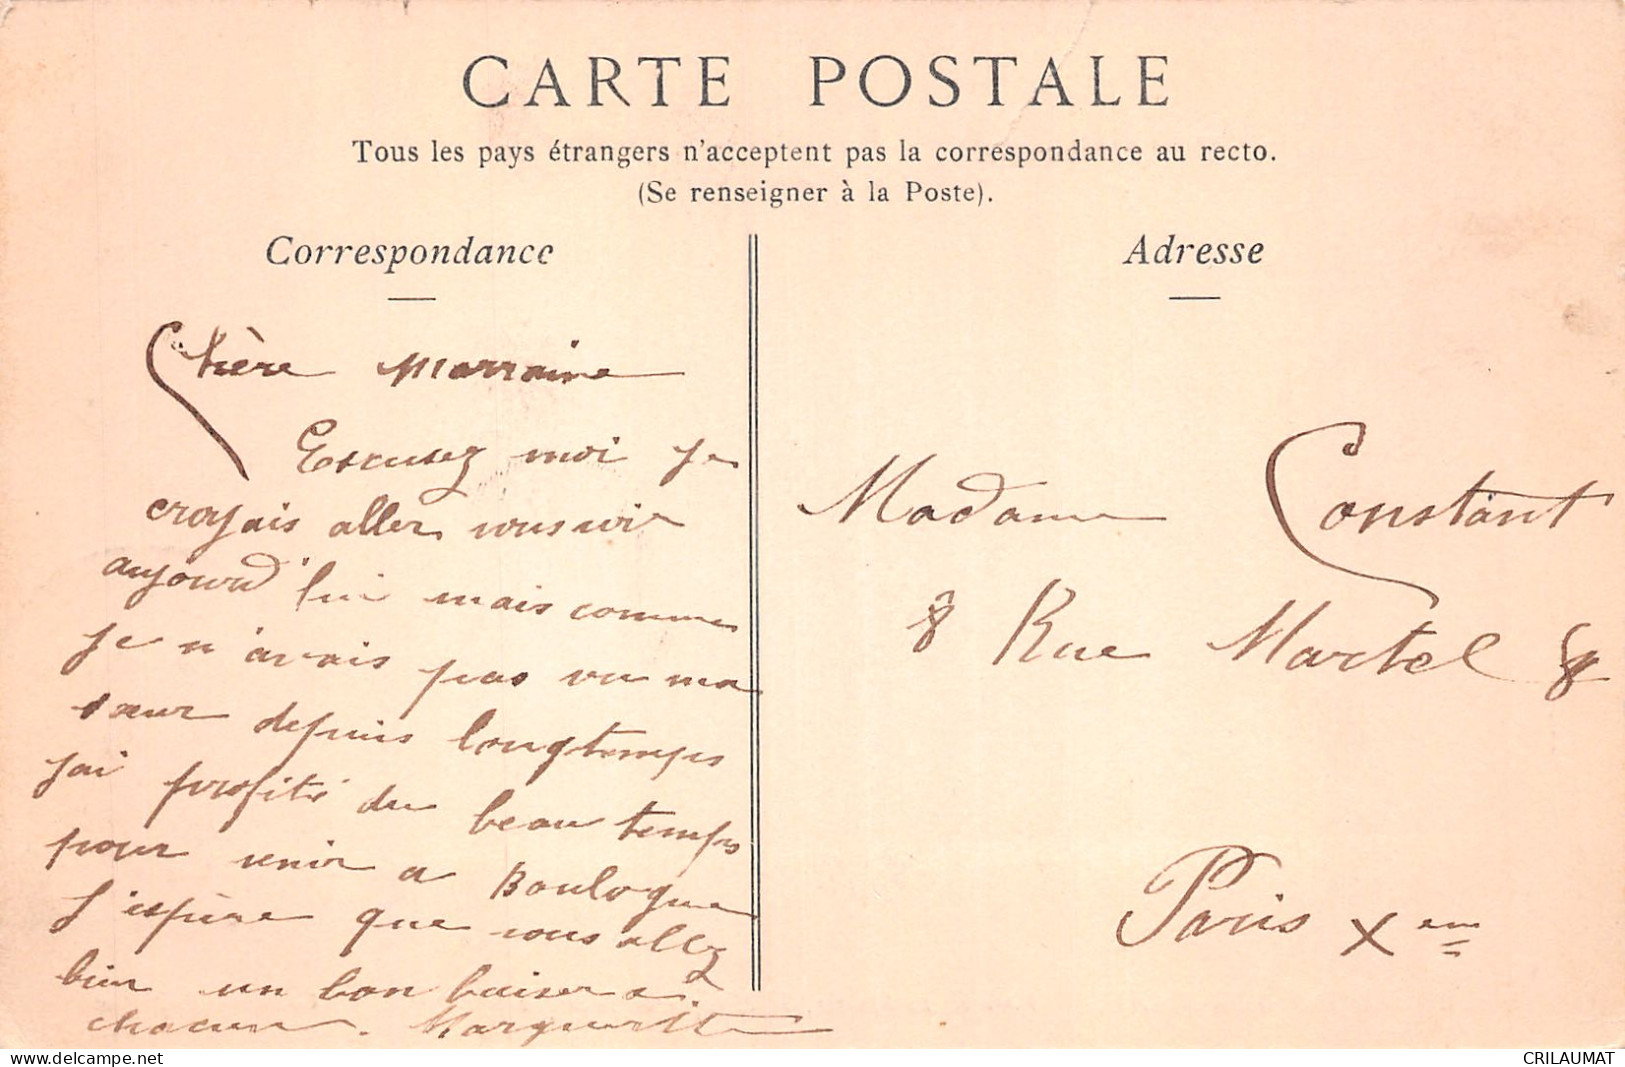 CARTE POSTALE
Tous les pays étrangers n'acceptent pas la correspondance au recto.
(Se renseigner à la Poste).
Correspondance
Chère Marraine
Excusez moi je
croyais aller vous voir
aujourd'hui mais comme
je n'avais pas vu ma
sœur depuis longtemps
j'ai profité du beau temps
pour venir a Boulogne
J'espère que vous allez
bien un bon baiser a
chacun. Marguerite
Adresse
Madame Constant
8 Rue Martel 8
Paris Xem
delcampe.net
CRILAUMAT